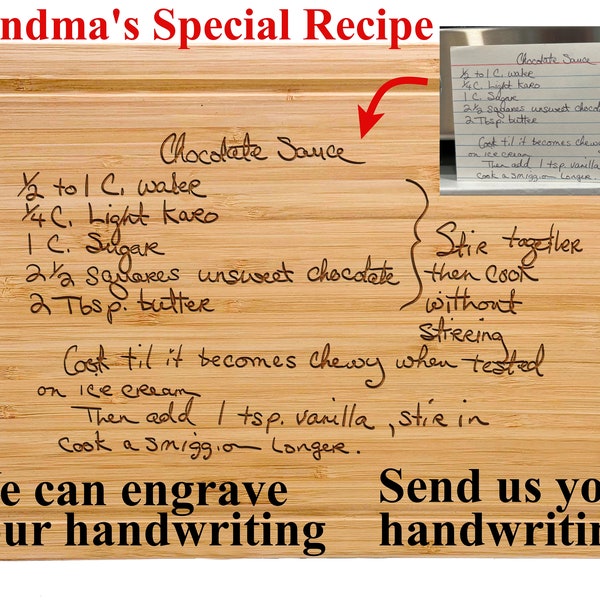 ndma's Special Recipe
Chocolate Sauce
1/2 to 1 C. water
1/4 C. Light Karo
1 C. Sugar
2 1/2 squares unsweet chocolate
2 Tbsp. butter
Stir together
then cook
without
stirring
Cook til it becomes chewy when tested
on ice cream
Then add 1 tsp. vanilla, stir in
cook a smiggon longer.
Chocolate Sauce
1/2 to 1 C. water
1/4 C. Light Karo
1 C. Sugar
2 1/2 squares unsweet chocola
2 Tbsp. butter
Cook til it becomes chewy
on ice cream
Then add 1 tsp. vanilla
cook a smiggon longer.
e can engrave
ur handwriting
Send us yo
handwritin